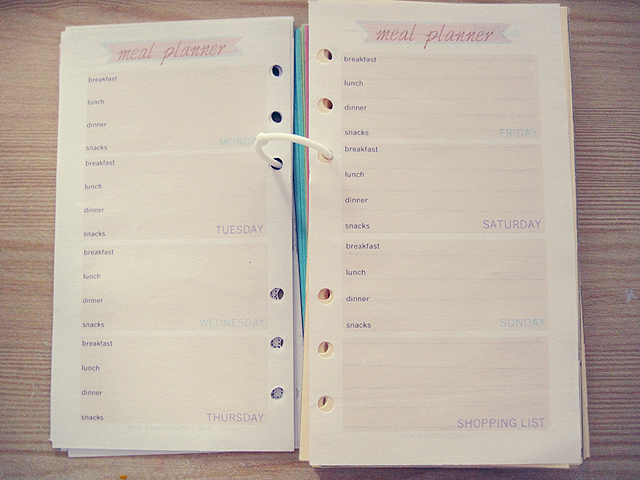 meal planner
breakfast
lunch
dinner
snacks
MONDAY
breakfast
lunch
dinner
snacks
TUESDAY
breakfast
lunch
dinner
snacks
WEDNESDAY
breakfast
lunch
dinner
snacks
THURSDAY
meal planner
breakfast
lunch
dinner
snacks
FRIDAY
breakfast
lunch
dinner
snacks
SATURDAY
breakfast
lunch
dinner
snacks
SUNDAY
SHOPPING LIST